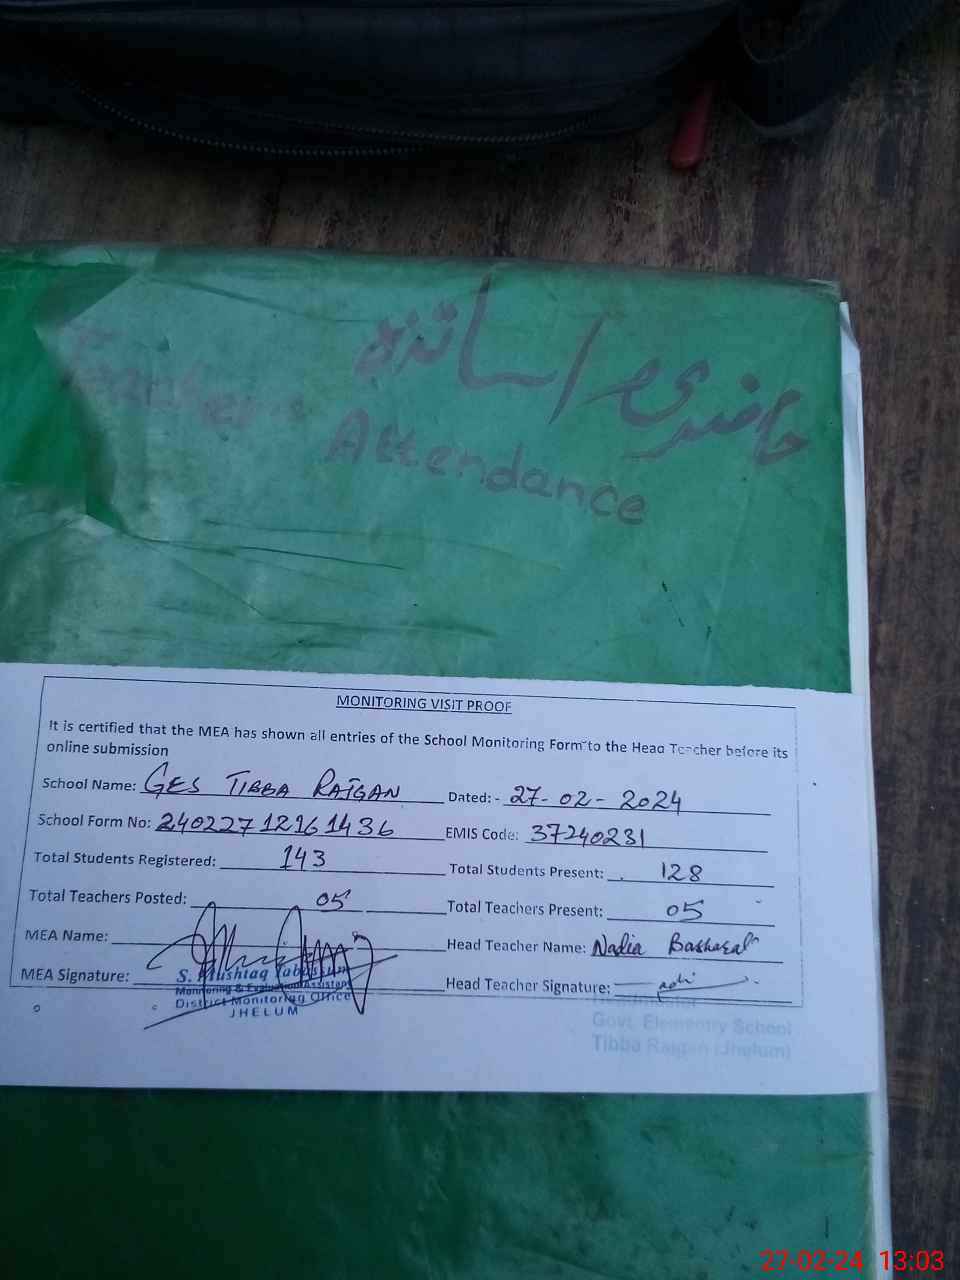 حاضری اساتذہ
Teacher's Attendance
MONITORING VISIT PROOF
It is certified that the MEA has shown all entries of the School Monitoring Form to the Head Teacher before its
online submission
School Name: GES TIBBA RAIGAN Dated: - 27-02-2024
School Form No: 24022712161436 EMIS Code: 37240231
Total Students Registered: 143 Total Students Present: 128
Total Teachers Posted: 05 Total Teachers Present: 05
MEA Name: Head Teacher Name: Nadia Basharat
MEA Signature: Head Teacher Signature:
S. Mushtaq Tabassum
Monitoring & Evaluation Assistant
District Monitoring Office
JHELUM
Govt. Elementry School
Tibba Raigan (Jhelum)
27-02-24 13:03